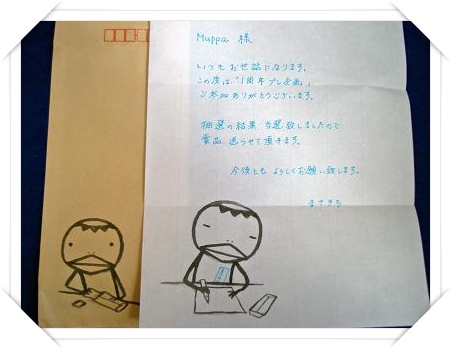 Muppa 様
いつもお世話になります。
この度は「1周年プレ企画」
ご参加ありがとうございます。
抽選の結果 当選致しましたので
賞品 送らせて頂きます。
今後とも よろしくお願い致します。
まさきち